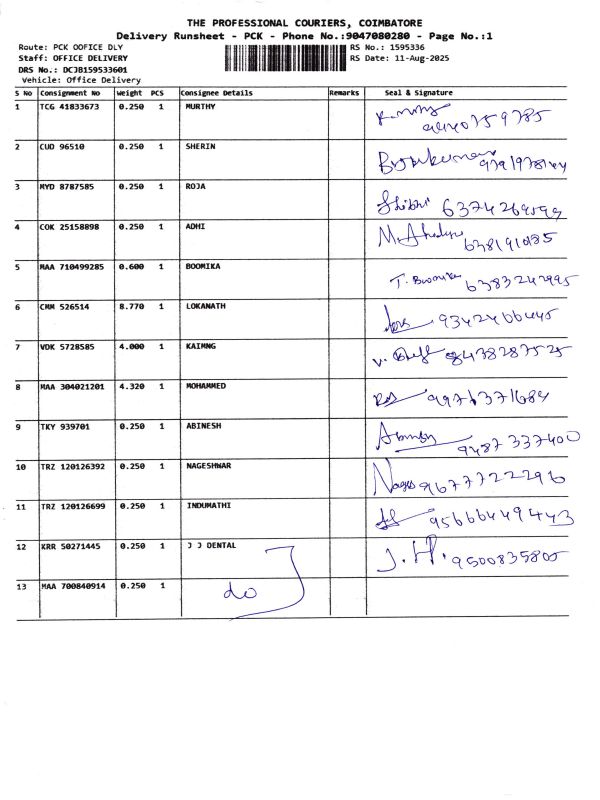 THE PROFESSIONAL COURIERS, COIMBATORE
Delivery Runsheet - PCK - Phone No.:9047080280 - Page No.:1
Route: PCK OOFICE DLY RS No.: 1595336
Staff: OFFICE DELIVERY RS Date: 11-Aug-2025
DRS No.: DCJB159533601
Vehicle: Office Delivery
S No Consignment No Weight PCS Consignee Details Remarks Seal & Signature
1 TCG 41833673 0.250 1 MURTHY
2 CUD 96510 0.250 1 SHERIN
3 MYD 8787585 0.250 1 ROJA
4 COK 25158898 0.250 1 ADHI
5 MAA 710499285 0.600 1 BOOMIKA T. Boomika 6383242995
6 CMM 526514 8.770 1 LOKANATH 9342466445
7 VDK 5728585 4.000 1 KAIMNG 8438287525
8 MAA 304021201 4.320 1 MOHAMMED 9976371684
9 TKY 939701 0.250 1 ABINESH 9487337400
10 TRZ 120126392 0.250 1 NAGESHWAR Nages 9677722296
11 TRZ 120126699 0.250 1 INDUMATHI 9566649443
12 KRR 50271445 0.250 1 J J DENTAL J. H. 9500835805
13 MAA 700840914 0.250 1 do